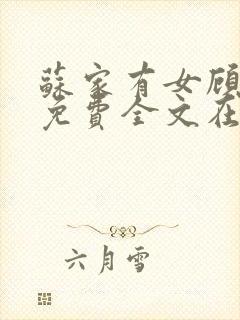 蘇家有女顾
免費全文在
六月雪